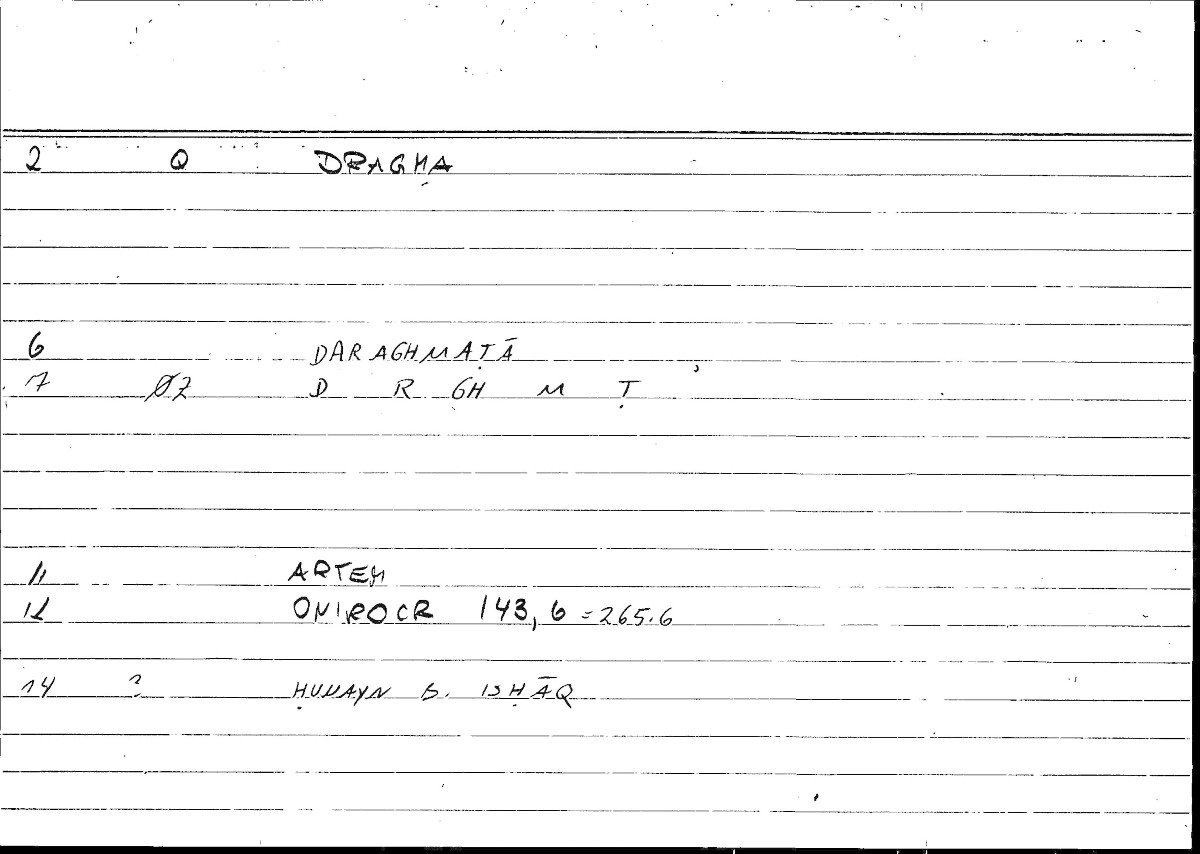 2 Q DRAGMA
6 DARAGHMAṬĀ
7 ØZ D R GH M Ṭ
11 ARTEM
12 ONIROCR 143,6 = 265.6
14 ? ḤUNAYN B. ISḤĀQ